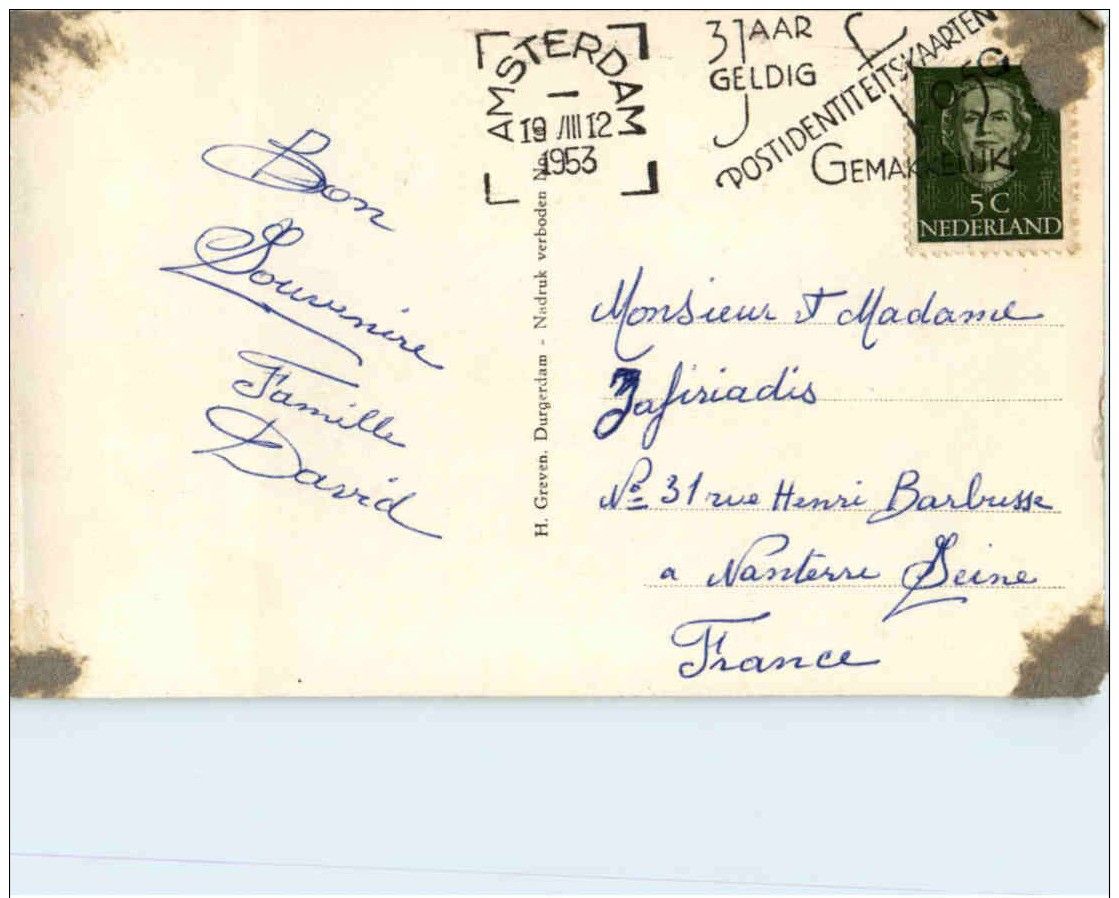 AMSTERDAM
19 VIII 12
1953
3 JAAR
GELDIG
POSTIDENTITEITSKAARTEN
GEMAKKELIJK
5 C
NEDERLAND
Bon
Souvenire
Famille
David
H. Greven, Durgerdam - Nadruk verboden No.
Monsieur et Madame
Zafiriadis
No 31 rue Henri Barbusse
a Nanterre Seine
France